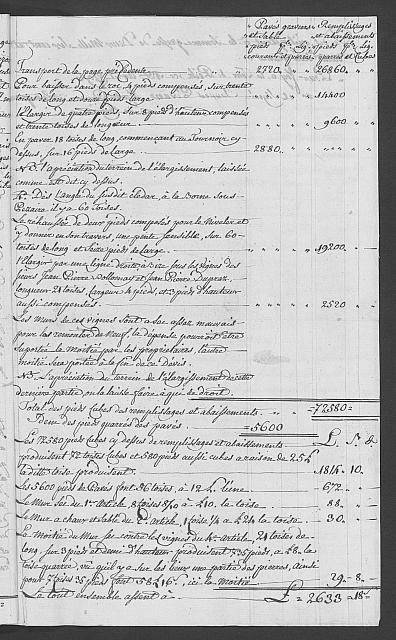 Pavés graviers Remplissages
et Sable et abaissements
pieds pces Lig. pieds pces Lig.
courants et quarrés quarrés et Cubes
Transport de la page précédente 2720 " " 26860 " "
Pour baisser dans le roc, 4 pieds compensés, sur trente
toises de long et douze pieds large " " " 14400
L'Elargir de quatre pieds, sur 8 pieds d'hauteur compensés
et trente toises de longueur " " " 9600 " "
En paver 18 toises de long, commençant au Tournoir cy
dessus, sur 16 pieds de large 2880 " "
Na. L'apréciation du terrein de l'élargissement, laissée
comme est dit cy dessus.
Dès l'angle du susdit à la Borne sous
il y a 60 Toises.
Le rehausser de deux pieds compensés pour le Niveler et
y donner en son travers une pente sensible, sur 60
toises de long et seize pieds de large. " " " 19200 " "
L'Elargir par une ligne droite à Bize sous les vignes des
Srs Jean Pierre et Jean Pierre Dupraz,
longueur 21 toises, largeur 4 pieds, et 5 pieds d'hauteur
aussi compensés. " " " 2520 " "
Les murs de ces vignes sont à sec assez mauvais
pour les remonter de Neuf la dépense pourroit être
suportée la Moitié par les propriétaires, l'autre
moitié sera portée à la fin de ce Dévis.
Na. L'apréciation du terrein de l'Elargissement de cette
dernière partie on la laisse faire à qui de droit.
Total des pieds Cubes des remplissages et abaissements " " =72580=
Idem des pieds quarrés des pavés =5600
Les 72580 pieds Cubes cy dessus de remplissages et abaissements L. S. d.
produisent 72 toises Cubes et 580 pieds aussi cubes à raison de 25 L
la ditte toise produisent 1814 " 10. "
Les 5600 pieds de Pavés font 56 toises, à 12 L l'une. 672 " "
Le Mur Sec du 1er Article 8 toises 8/10 à L10. la toise 88 " "
Le Mur à chaux et sable du 2e Article 1 toise 1/4 à 24 la toise 30 " "
La Moitié du Mur Sec contre les vignes du 4e Article 21 toises de
long, sur 3 pieds et demi d'hauteur produisent 735 pieds, à L8 la
toise quarrée, vû qu'il y a sur les lieux une partie des pierres, ainsi
pour 7 toises 35 pieds font 58 L 16 s, ici la moitié 29 " 8 "
Le tout ensemble assent à L = 2633 = 18 s